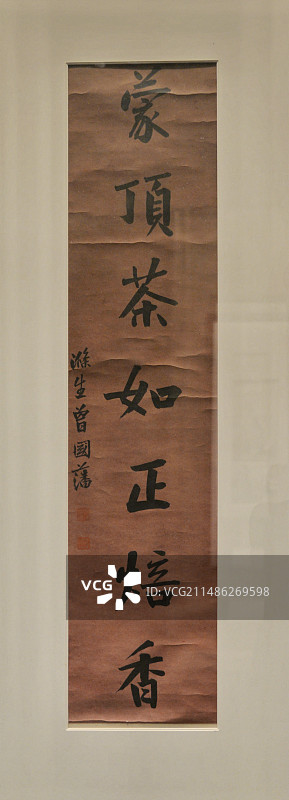 蒙頂茶如正焙香
滌生曾國藩
VCG
VCG211486269598